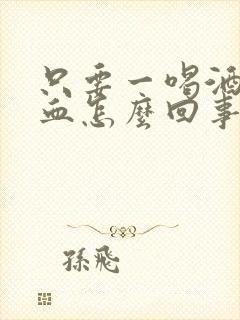 只要一喝酒
血怎麼回事
孫飛